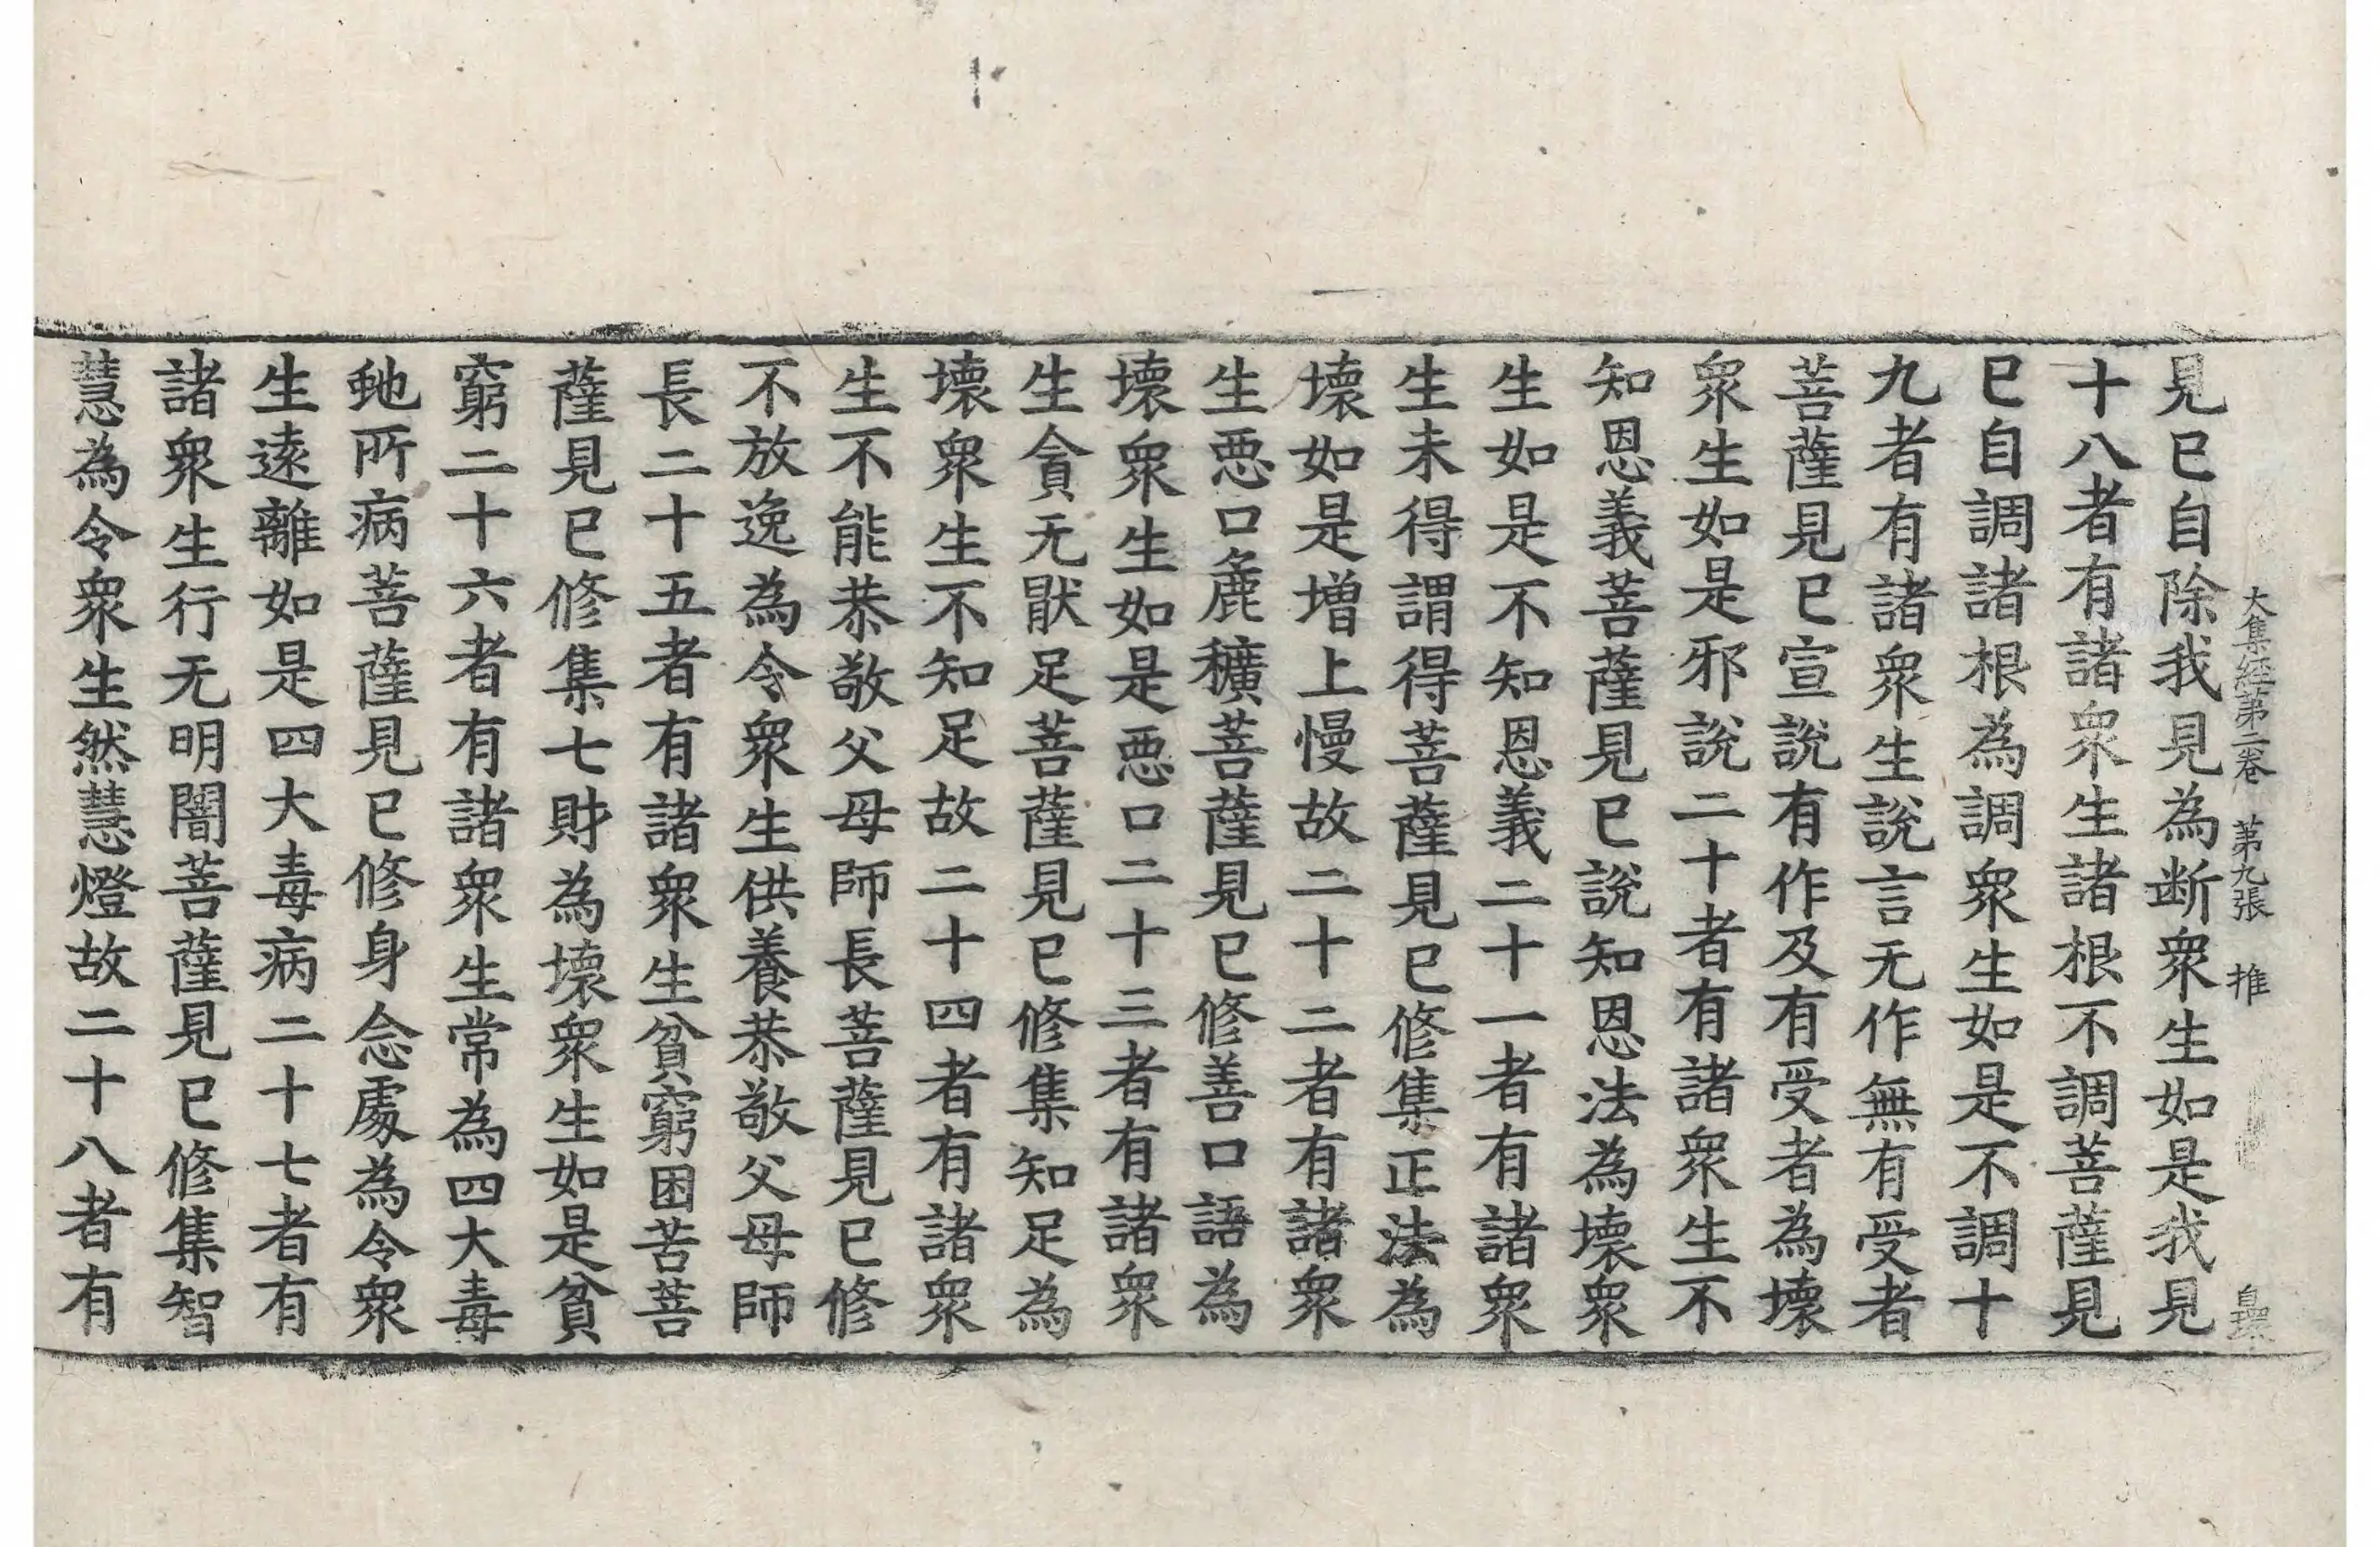 大集經第二卷 第九張 推
見已自除我見為断衆生如是我見
十八者有諸衆生諸根不調菩薩見
已自調諸根為調衆生如是不調十
九者有諸衆生說言无作無有受者
菩薩見已宣說有作及有受者為壞
衆生如是邪說二十者有諸衆生不
知恩義菩薩見已說知恩法為壞衆
生如是不知恩義二十一者有諸衆
生未得謂得菩薩見已修集正法為
壞如是增上慢故二十二者有諸衆
生惡口麁穬菩薩見已修善口語為
壞衆生如是惡口二十三者有諸衆
生貪无猒足菩薩見已修集知足為
壞衆生不知足故二十四者有諸衆
生不能恭敬父母師長菩薩見已修
不放逸為令衆生供養恭敬父母師
長二十五者有諸衆生貧窮困苦菩
薩見已修集七財為壞衆生如是貧
窮二十六者有諸衆生常為四大毒
虵所病菩薩見已修身念處為令衆
生遠離如是四大毒病二十七者有
諸衆生行无明闇菩薩見已修集智
慧為令衆生然慧燈故二十八者有